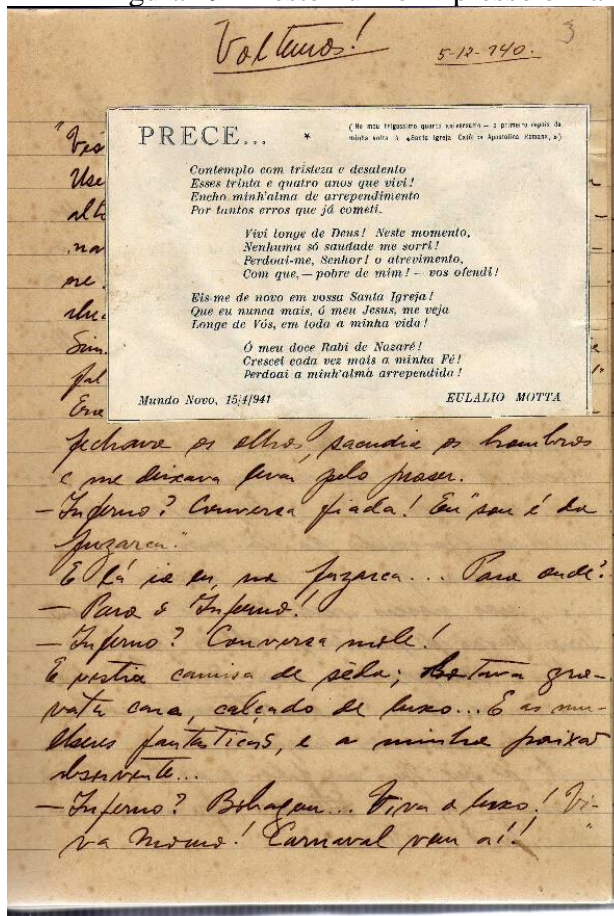 Voltemos!
5-12-940.
3
PRECE... *
(No meu trigessimo quarto aniversario — o primeiro depois da
minha volta à «Santa Igreja Apostolica Romana.»)
Contemplo com tristeza e desalento
Esses trinta e quatro anos que vivi!
Encho minh'alma de arrependimento
Por tantos erros que já cometi.
Vivi longe de Deus! Neste momento,
Nenhuma só saudade me sorri!
Perdoai-me, Senhor! o atrevimento,
Com que, — pobre de mim! — vos ofendi!
Eis-me de novo em vossa Santa Igreja!
Que eu nunca mais, ó meu Jesus, me veja
Longe de Vós, em toda a minha vida!
Ó meu doce Rabi de Nazaré!
Crescei cada vez mais a minha Fé!
Perdoai a minh'alma arrependida!
Mundo Novo, 15/4/941 EULALIO MOTTA
fechava os olhos, sacudia os hombros
e me deixava levar pelo praser.
— Inferno? Conversa fiada! Eu "sou é da
fuzarca."
E lá ia eu, na fuzarca... Para onde?
— Para o Inferno!
— Inferno? Conversa mole!
E vestia camisa de sêda; botava gra-
vata cara, calçado de luxo... E as mu-
lheres fantasticas, e a minha paixão
absorvente...
— Inferno? Bobagem... Viva o luxo! Vi-
va Momo! Carnaval vem aí!